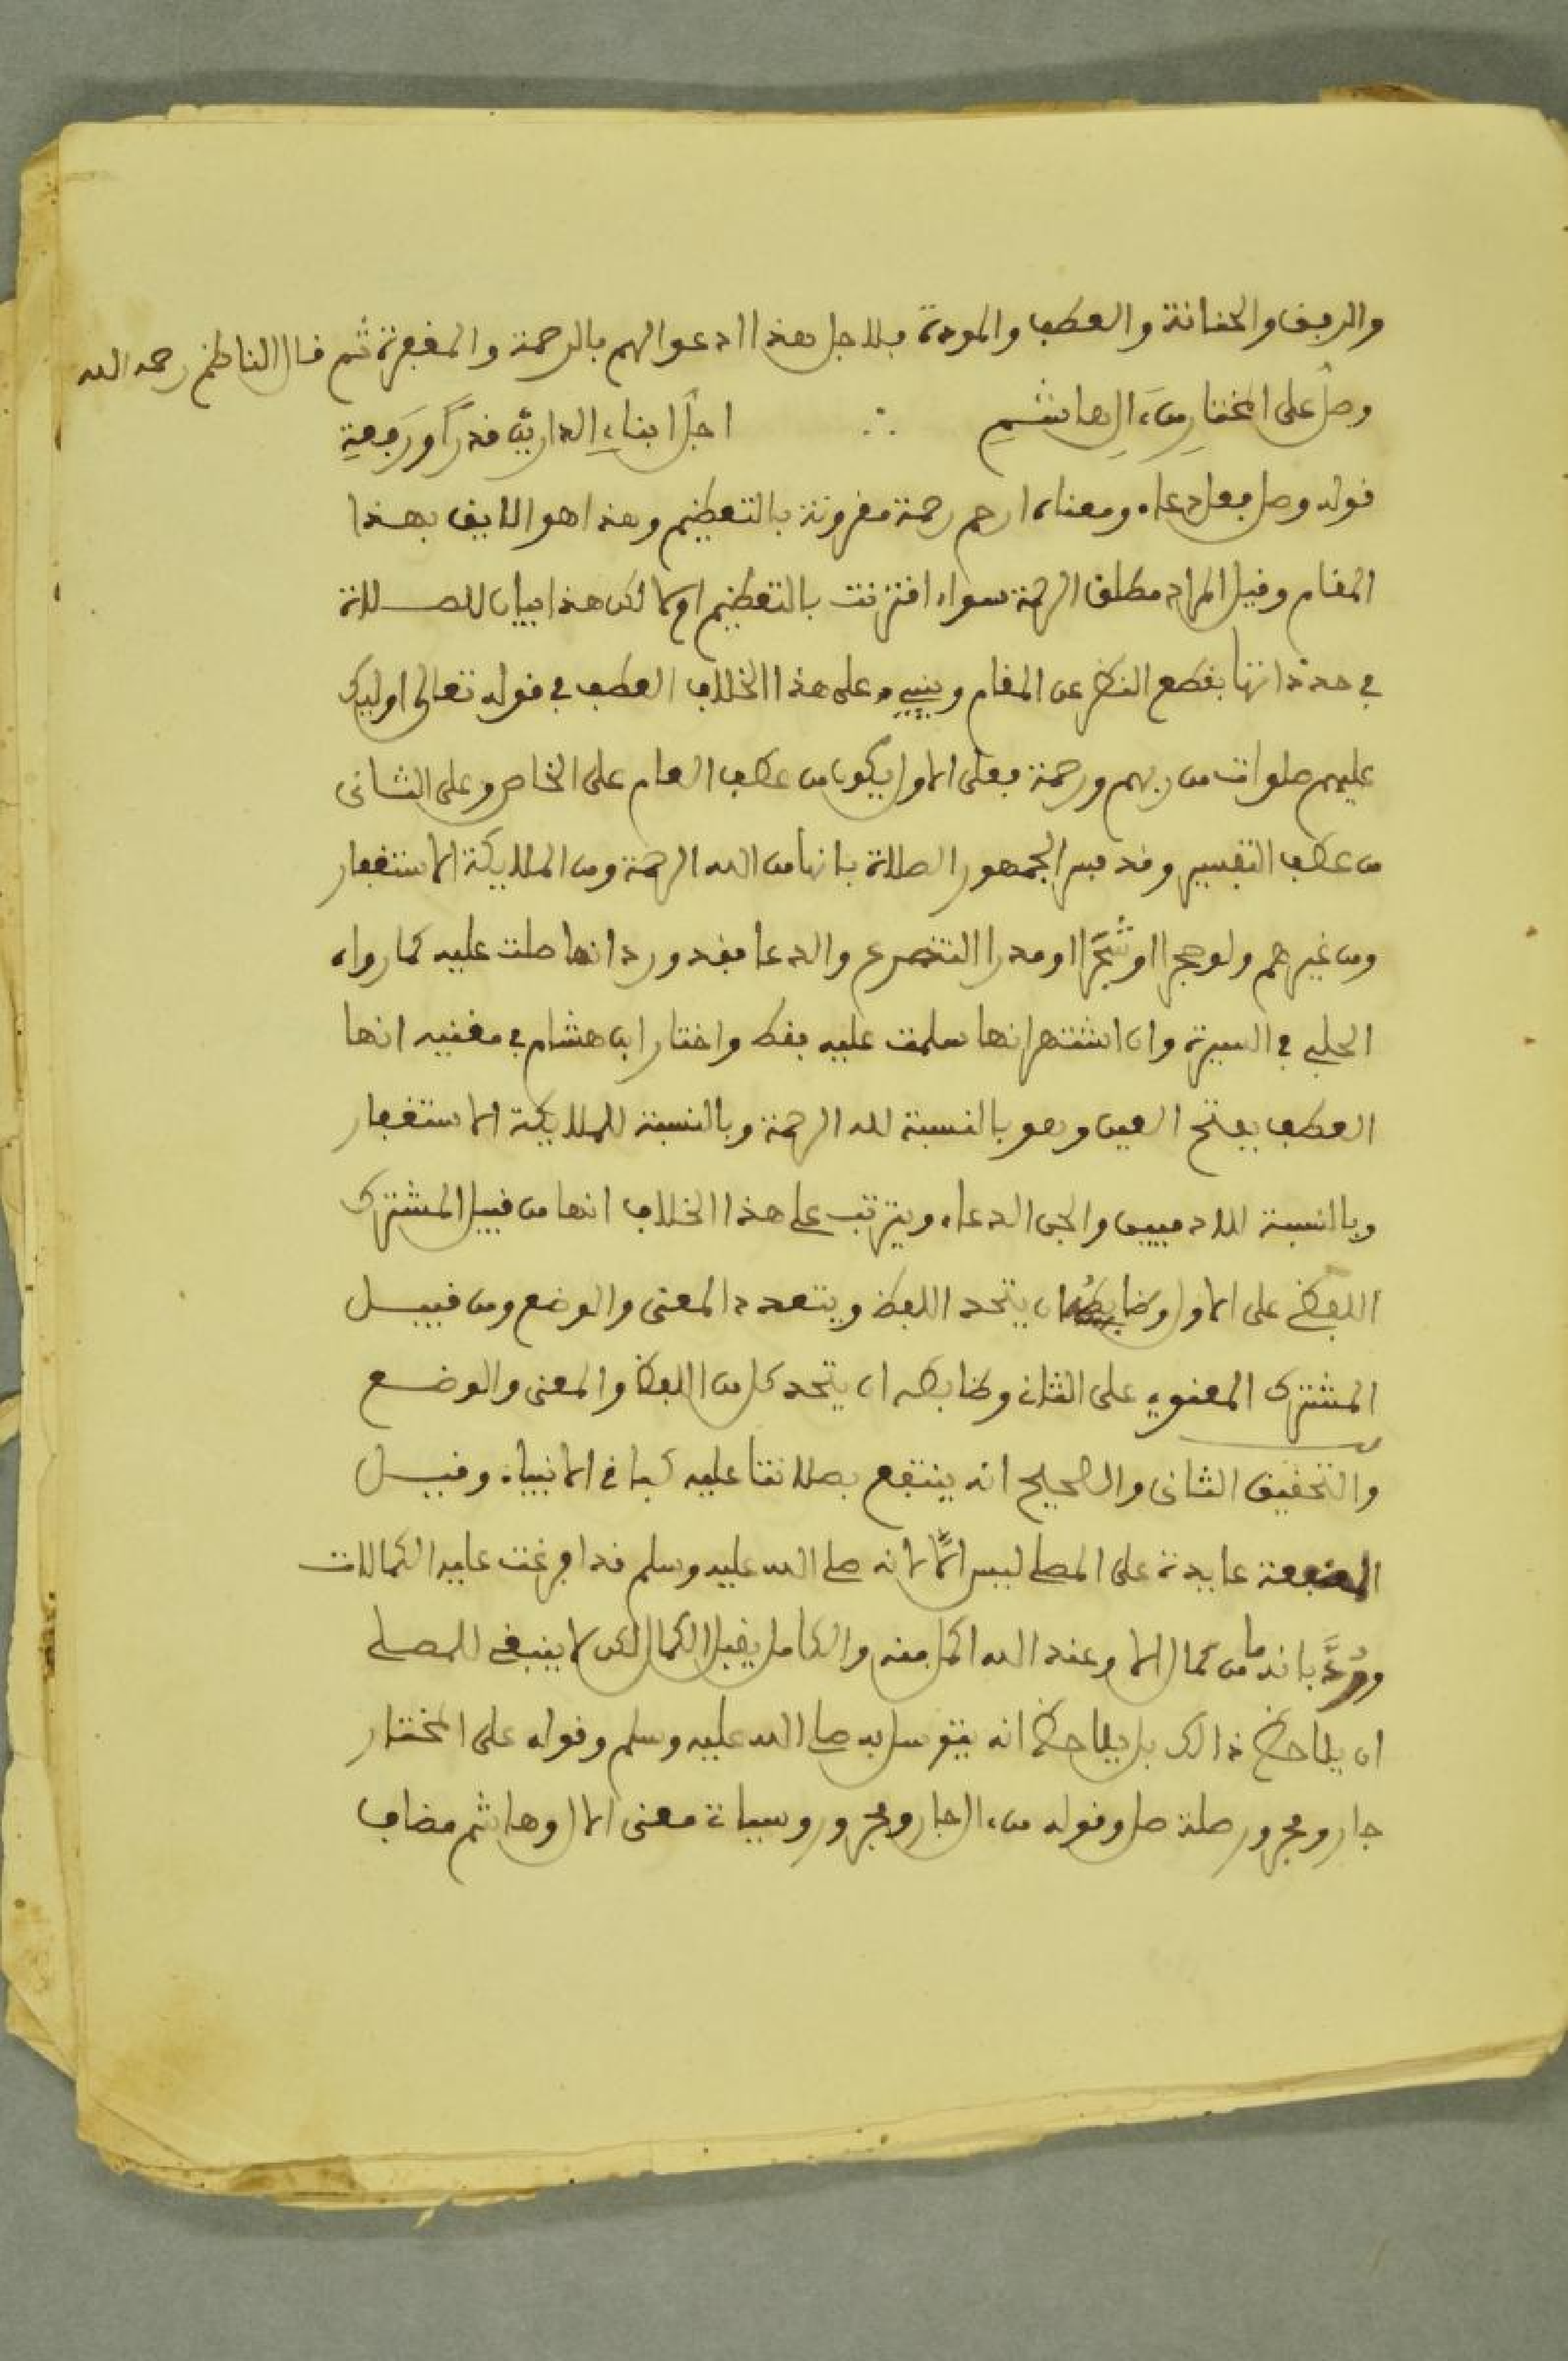 والرفق والحنانة والعطف والمودة فلاجل هذا ادعوا لهم بالرحمة والمغفرة ثم قال الناظم رحمه الله
وصل على المختار من ءال هاشم ∴ اجل ابناء الدارين قدرا ورفعة
قوله وصل فعل دعاء ومعناه ارحم رحمة مقرونة بالتعظيم وهذا هو اللايق بهذا
المقام وقيل المراد مطلق الرحمة سواء اقترنت بالتعظيم او لا لكن هذا بيان للصلاة
في حد ذاتها بقطع النظر عن المقام وينبني على هذا الخلاف العطف في قوله تعالى اوليك
عليهم صلوات من ربهم ورحمة فعلى الاول يكون من عطف العام على الخاص وعلى الثاني
من عطف التفسير وقد فسر الجمهور الصلاة بانها من الله الرحمة ومن الملايكة الاستغفار
ومن غيرهم ولو حجرا او شجرا او مدرا التضرع والدعا فقد ورد انها صلت عليه كما رواه
الحلبي في السيرة وان اشتهر انها سلمت عليه فقط واختار ابن هشام في مغنيه انها
العطف بفتح العين وهو بالنسبة لله الرحمة وبالنسبة للملايكة الاستغفار
وبالنسبة للادميين والجن الدعاء ويترتب على هذا الخلاف انها من قبيل المشترك
اللفظي على الاول وضابطه ان يتحد اللفظ ويتعدد المعنى والوضع ومن قبيل
المشترك المعنوي على الثاني وضابطه ان يتحد كل من اللفظ والمعنى والوضع
والتحقيق الثاني والصحيح انه ينتفع بصلاتنا عليه كباقي الانبياء وقيل
المنفعة عايدة على المصلي ليس الا لانه صلى الله عليه وسلم قد افرغت عليه الكمالات
ورد بانه ما من كمال الا وعند الله اكمل منه والكامل يقبل الكمال لكن لا ينبغي للمصلي
ان يلاحظ ذالك بل يلاحظ انه يتوسل به صلى الله عليه وسلم وقوله على المختار
جار ومجرور صلة صل وقوله من ءال جار ومجرور وسياتي معنى الال وهاشم مضاف